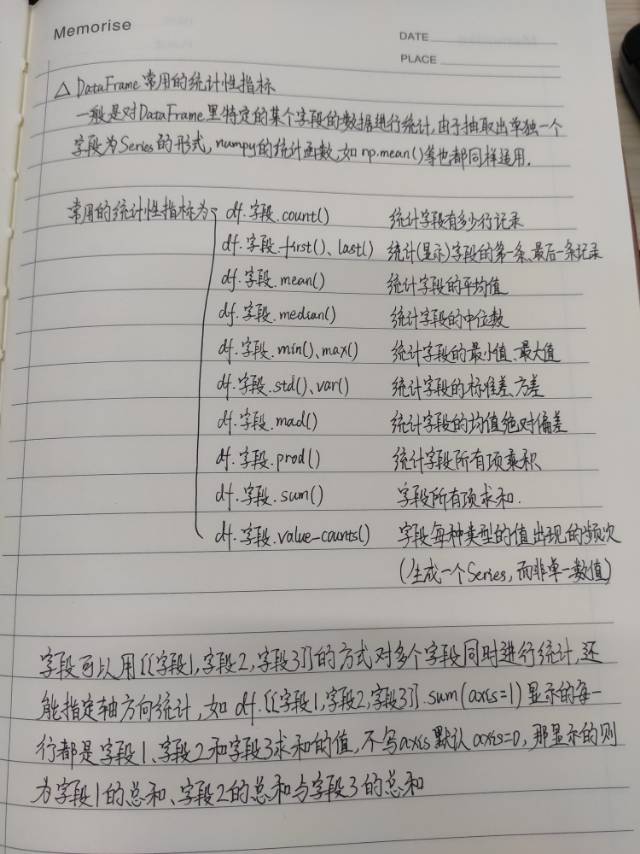 Memorise
DATE
PLACE
△ DataFrame常用的统计性指标
一般是对DataFrame里特定的某个字段的数据进行统计,由于抽取出单独一个
字段为Series的形式,numpy的统计函数,如np.mean()等也都同样适用.
常用的统计性指标为 df.字段.count() 统计字段有多少行记录
df.字段.first()、last() 统计(显示)字段的第一条、最后一条记录
df.字段.mean() 统计字段的平均值
df.字段.median() 统计字段的中位数
df.字段.min()、max() 统计字段的最小值、最大值
df.字段.std()、var() 统计字段的标准差、方差
df.字段.mad() 统计字段的均值绝对偏差
df.字段.prod() 统计字段所有项乘积
df.字段.sum() 字段所有项求和.
df.字段.value-counts() 字段每种类型的值出现的频次
(生成一个Series,而非单一数值)
字段可以用[[字段1,字段2,字段3]]的方式对多个字段同时进行统计,还
能指定轴方向统计,如df.[[字段1,字段2,字段3]].sum(axis=1)显示的每一
行都是字段1、字段2和字段3求和的值,不写axis默认axis=0,那显示的则
为字段1的总和、字段2的总和与字段3的总和